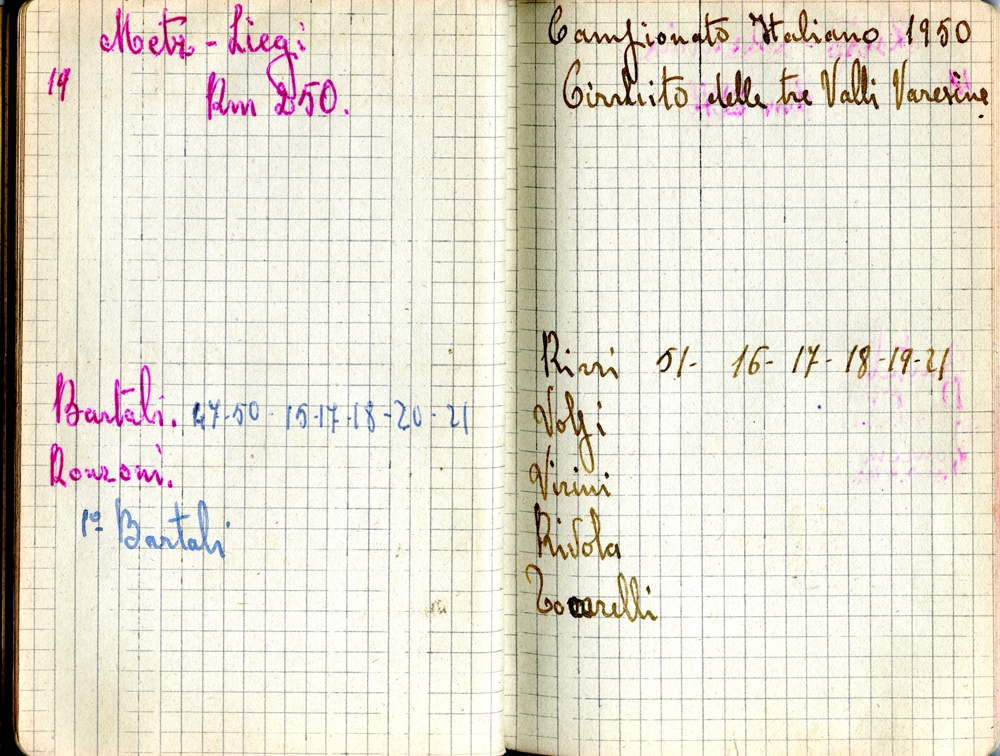 Metz - Liegi
14
Km 250.
Bartali. 47-50 - 15-17-18-20-21
Ronzoni.
1º Bartali
Campionato Italiano 1950
Circuito delle tre Valli Varesine.
Rizzi 51- 16-17-18-19-21
Volpi
Vicini
Rivola